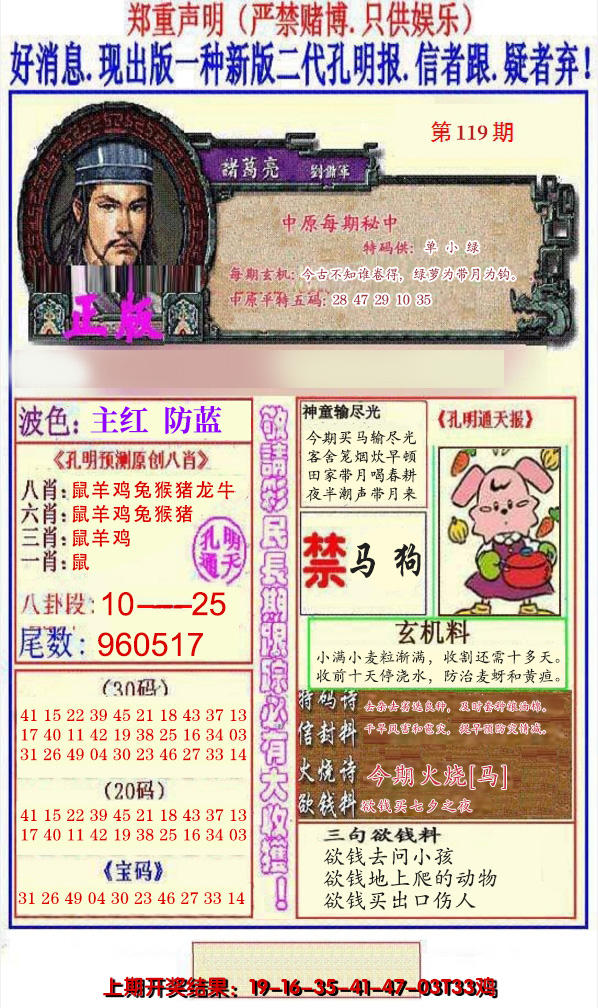 郑重声明（严禁赌博.只供娱乐）
好消息.现出版一种新版二代孔明报.信者跟.疑者弃！
第119期
諸葛亮 劉備軍
中原每期秘中
特码供：单小绿
每期玄机：今古不知谁卷得，绿萝为带月为钩。
中原平特五码：28 47 29 10 35
正版
波色：主红 防蓝
《孔明预测原创八肖》
八肖：鼠羊鸡兔猴猪龙牛
六肖：鼠羊鸡兔猴猪
三肖：鼠羊鸡
一肖：鼠
孔明
通天
八卦段：10——25
尾数：960517
（30码）
41 15 22 39 45 21 18 43 37 13
17 40 11 42 19 38 25 16 34 03
31 26 49 04 30 23 46 27 33 14
（20码）
41 15 22 39 45 21 18 43 37 13
17 40 11 42 19 38 25 16 34 03
《宝码》
31 26 49 04 30 23 46 27 33 14
敬請彩民長期跟踪必有大收獲！
神童输尽光
今期买马输尽光
客舍笼烟炊早顿
田家带月喝春耕
夜半潮声带月来
《孔明通天报》
禁马狗
玄机料
小满小麦粒渐满，收割还需十多天。
收前十天停浇水，防治麦蚜和黄疸。
特码诗 去杂去劣选良种，及时套种粮油棉。
信封料 干旱风害和雹灾，提早预防灾情减。
火烧诗 今期火烧[马]
欲钱料 欲钱买七夕之夜
三句欲钱料
欲钱去问小孩
欲钱地上爬的动物
欲钱买出口伤人
上期开奖结果：19-16-35-41-47-03T33鸡